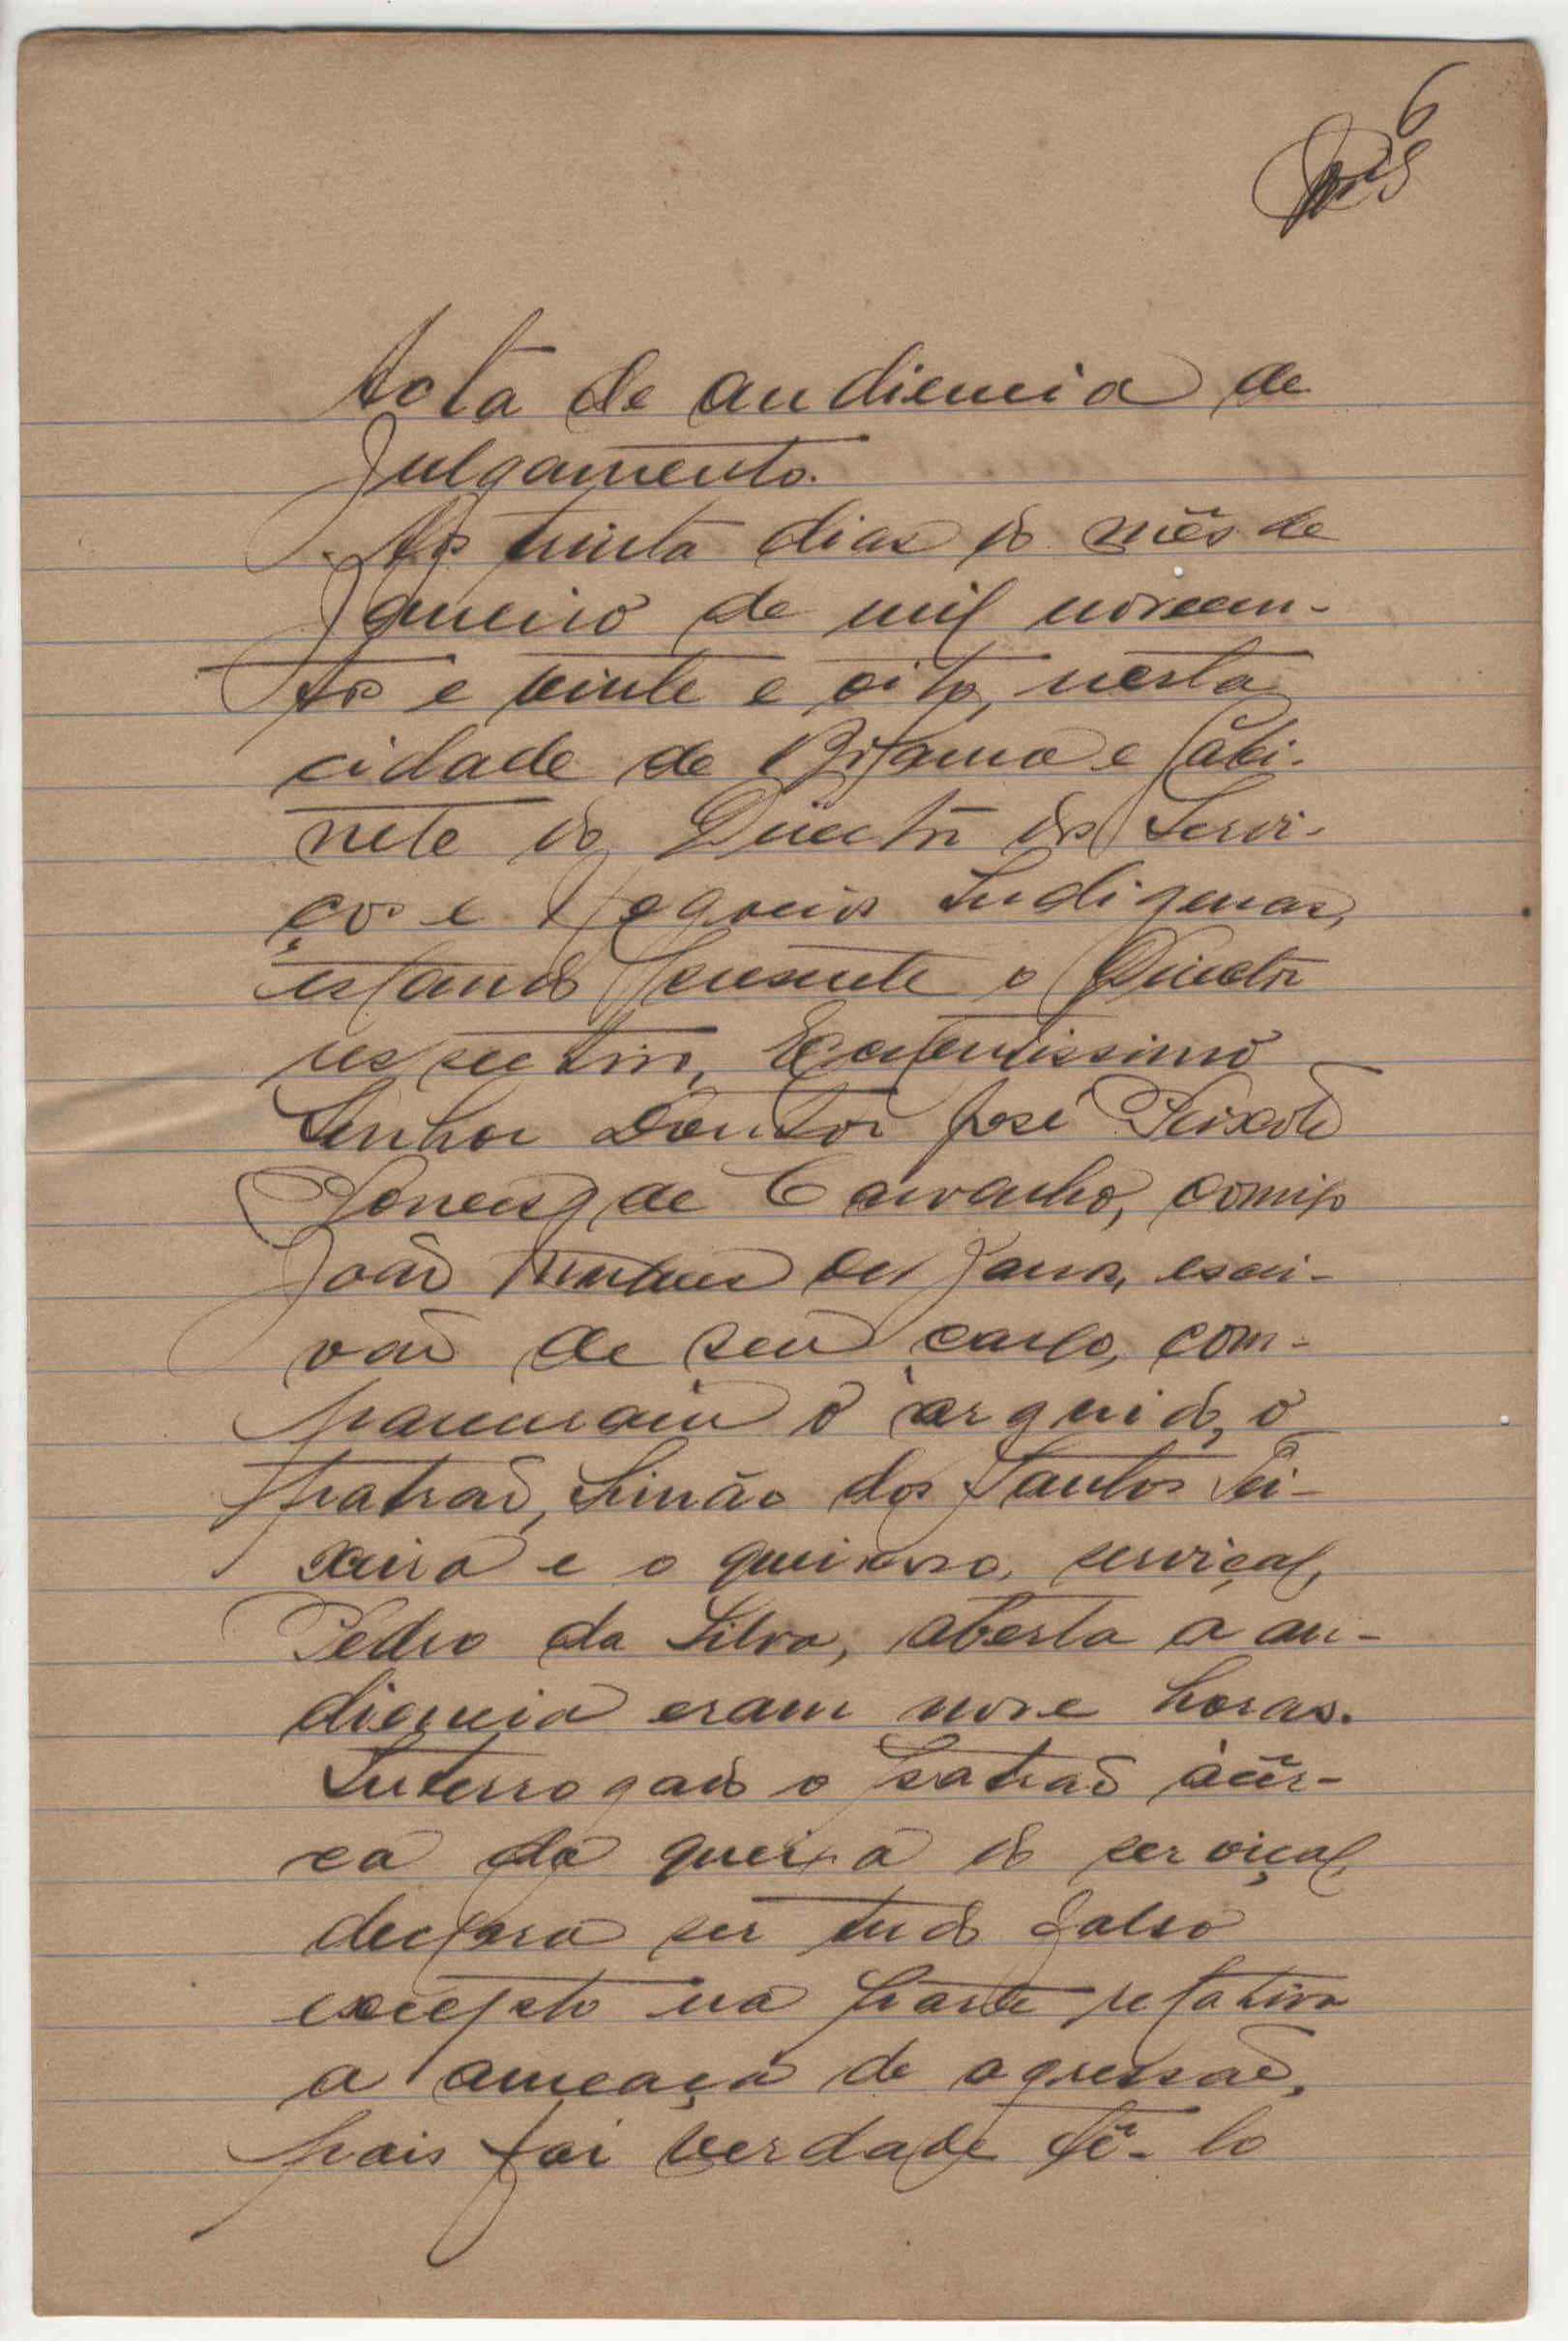 6
Acta de audiencia de
Julgamento.
Aos trinta dias do mês de
Janeiro de mil novecen-
tos e vinte e oito, nesta
cidade de Bolama e Gâbi-
nete do Director dos Servi-
ços e Negocios Indigenas,
estando presente o Director
respectivo, Excelentissimo
Senhor Doutor José Peixoto
Ponces de Carvalho, comigo
João de Jesus, escri-
vão de seu cargo, com-
pareceram o arguido, o
patrão, Simão dos Santos Tei-
xeira e o queixoso, serviçal,
Pedro da Silva, aberta a au-
diencia eram nove horas.
Interrogado o patrão àcêr-
ca da queixa do serviçal,
declara ser tudo falso
excepto na parte relativa
a ameaça de agressão,
pois foi verdade tê-lo